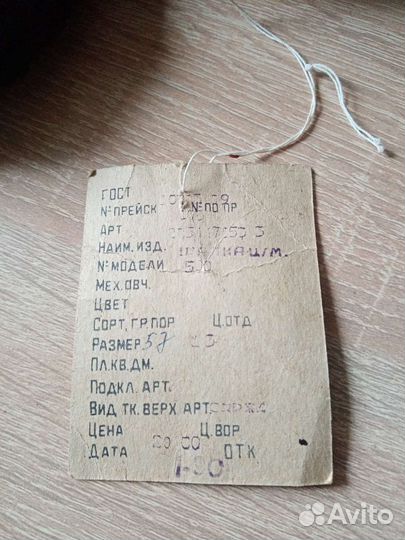 ГОСТ
№ПРЕЙСК №ПО ПР
АРТ
НАИМ.ИЗД. Ц/М.
№МОДЕЛИ
МЕХ.ОВЧ.
ЦВЕТ
СОРТ, ГР.ПОР Ц.ОТД
РАЗМЕР 57
ПЛ.КВ.ДМ.
ПОДКЛ. АРТ.
ВИД ТК. ВЕРХ АРТ
ЦЕНА Ц.ВОР
ДАТА ОТК
Avito